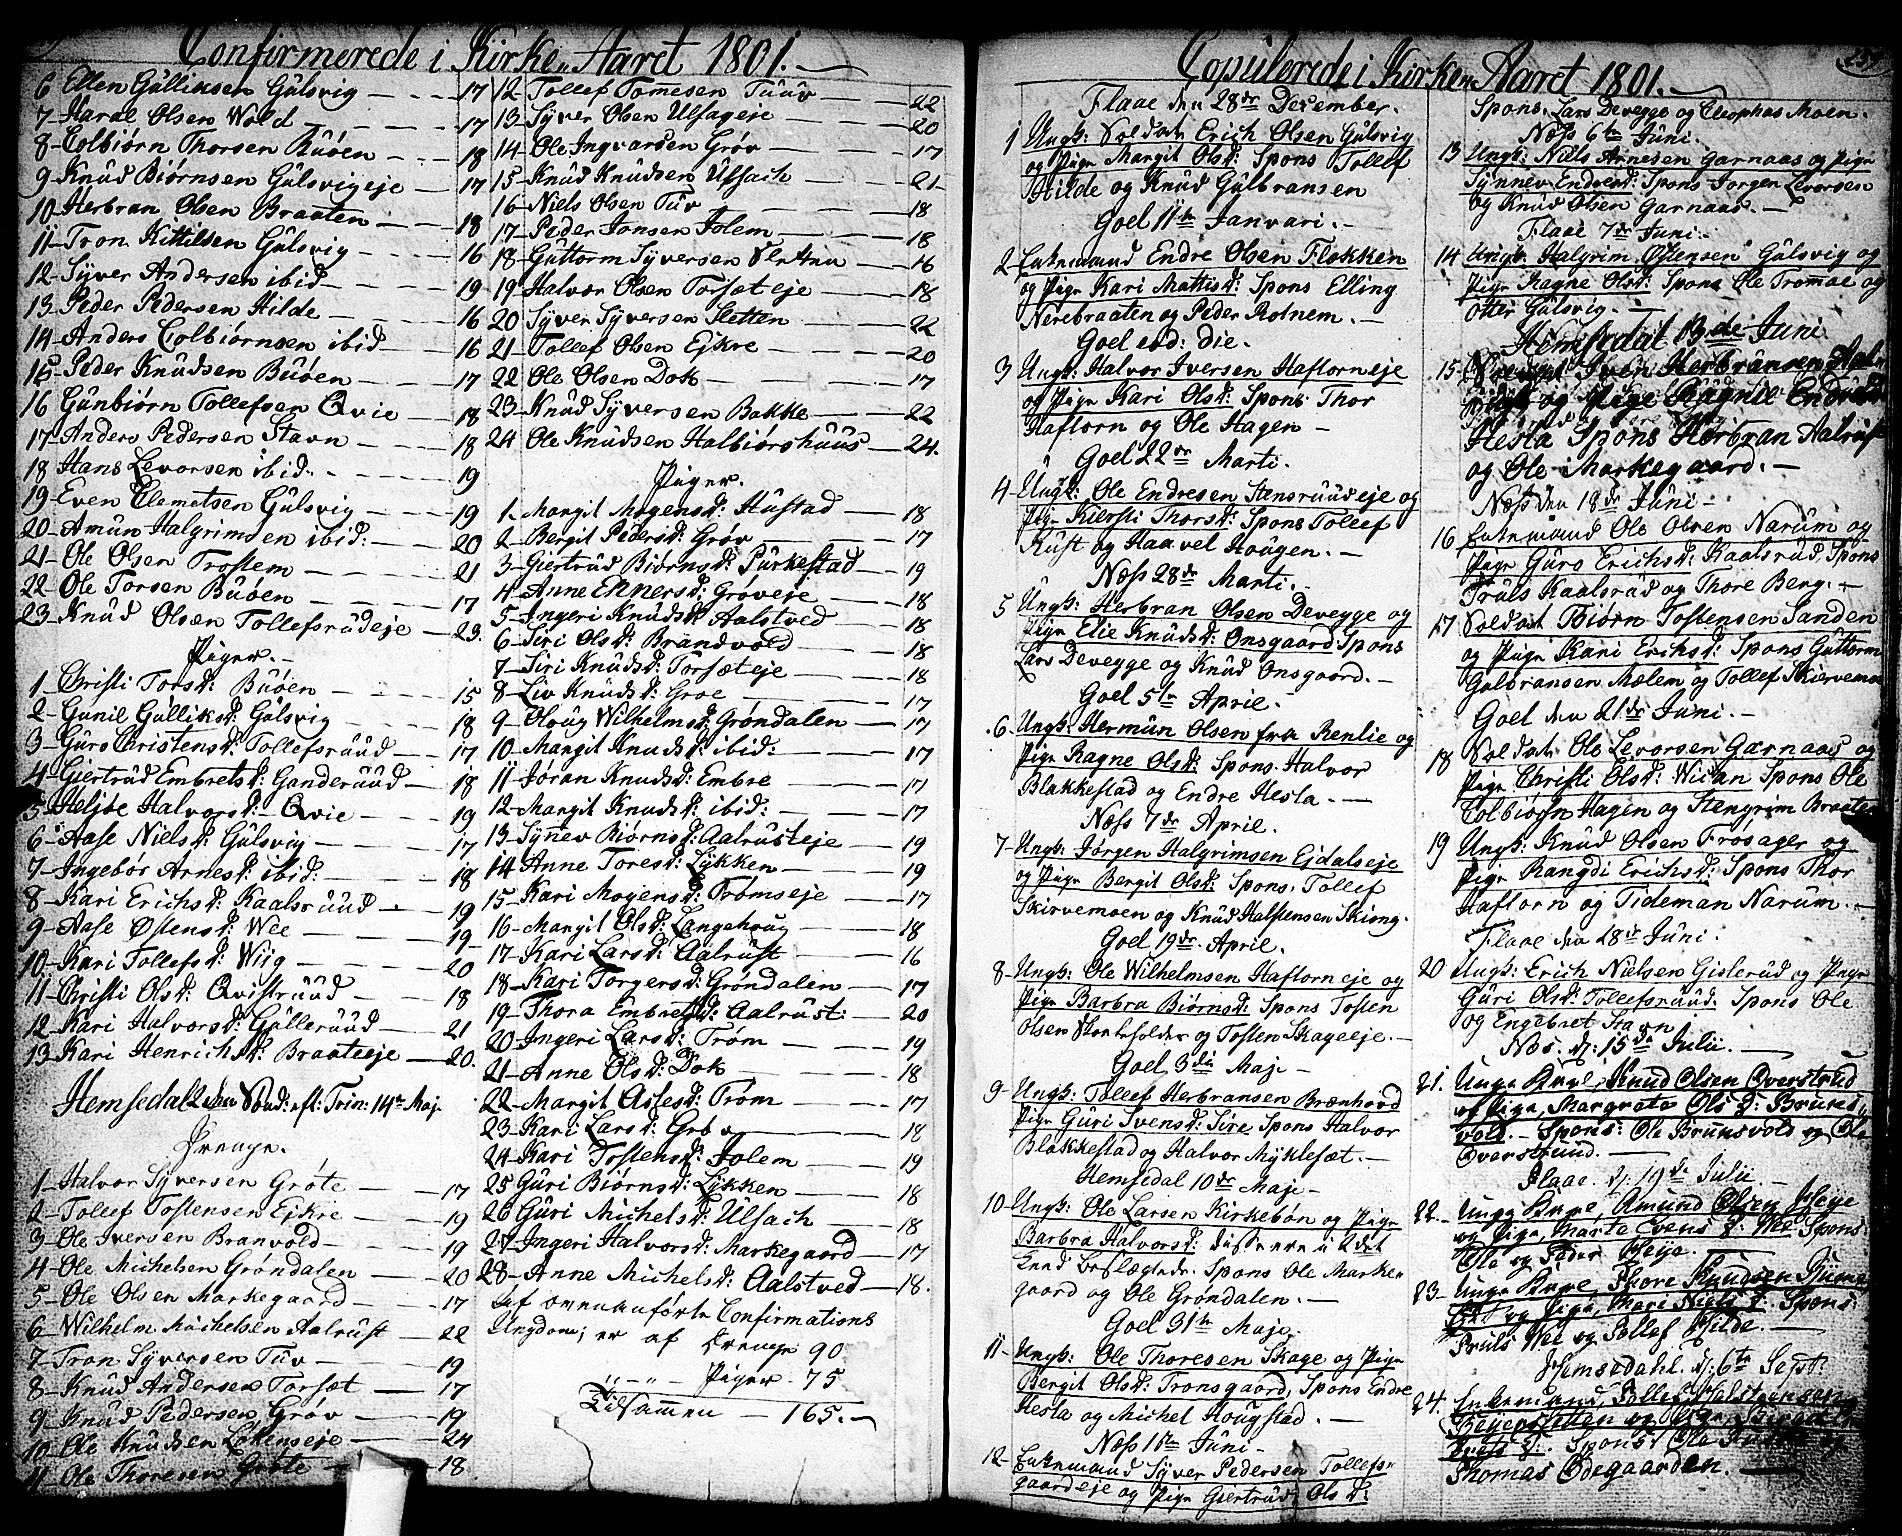 Confirmerede i Kirke Aaret 1801.
6 Ellen Gulliksen Gulsvig — 17
7 Haral Olsen Wold — 17
8 Colbiørn Thorsen Buøen — 18
9 Knud Biørnsen Gulsvigeje — 17
10 Herbran Olsen Braaten — 18
11 Tron Kittilsen Gulsvig — 16
12 Syver Andersen ibid — 19
13 Peder Pedersen Hilde — 16
14 Anders Colbiørnsen ibid — 16
15 Peder Knudsen Buøen — 17
16 Gunbiørn Tollefsen Qvie — 18
17 Anders Pedersen Stavn — 18
18 Hans Levorsen ibid: — 19
19 Even Clemetsen Gulsvig — 19
20 Amun Halgrimsen ibid: — 20
21 Ole Olsen Trostem — 21
22 Ole Torsen Buøen — 17
23 Knud Olsen Tollefsrudeje — 23.
Piger. —
1 Christi Torsd: Buøen — 15
2 Gunil Gulliksd: Gulsvig — 18
3 Guro Christensd: Tollefsruud — 17
4 Giertrud Embretsd: Ganderuud — 18
5 Heljøe Halvorsd: Qvie — 19
6 Aase Nielsd: Gulsvig — 17
7 Ingebor Arnesd: ibid: — 18
8 Kari Erichsd: Kaalsruud — 19
9 Aase Østensd: Wee — 19
10 Kari Tollefsd: Wiig — 20
11 Christi Olsd: Qvistruud — 18
12 Kari Halvorsd: Gulleruud — 21
13 Kari Henrichsd: Braateeje — 20.
Hemsedal 2den Sønd: eft: Trin: 14de Maj.
Drenge.
1 Halvor Syversen Grøte — 17
2 Tollef Tostensen Ejkre — 19
3 Ole Iversen Branvold — 19
4 Ole Michelsen Grøndalen — 20
5 Ole Olsen Markegaard — 17
6 Wilhelm Michelsen Aalrust — 22
7 Tron Syversen Tuv — 19
8 Knud Andersen Torsæt — 17
9 Knud Pedersen Grøv — 19
10 Ole Knudsen Løkenseje — 24
11 Ole Thoresen Grøte — 18
12 Tollef Tomesen Tuuv — 22
13 Syver Olsen Ulsageje — 20
14 Ole Ingvarsen Grøv — 17
15 Knud Knudsen Ulsach — 21
16 Niels Olsen Tuv — 18
17 Peder Jonsen Jolem — 18
18 Guttorm Syversen — 16
19 Halvor Olsen Torsæteje — 18
20 Syver Syversen Sletten — 22
21 Tollef Olsen Ejkre — 20
22 Ole Olsen Dok — 17
23 Knud Syversen Bakke — 22
24 Ole Knudsen Halbiørshuus — 24.
Piger.
1 Margit Mogensd: Hustad — 18
2 Bergit Pedersd: Grøv — 17
3 Giertrud Biørnsd: Purkestad — 19
4 Anne Ehnersd: Grøveje — 18
5 Ingeri Knudsd: Aalstved — 18
6 Siri Olsd: Brandvold — 18
7 Siri Knudsd: Torsæteje — 18
8 Liv Knudsd: Groe — 17
9 Houg Wilhelmsd: Grøndalen — 17
10 Margit Knudsd: ibid: — 17
11 Jøran Knudsd: Embre — 17
12 Margit Knudsd: ibid: — 17
13 Synnev Biørnsd: Aalrusteje — 19
14 Anne Toresd: Lykken — 19
15 Kari Mogensd: Trømseje — 17
16 Margit Olsd: Langehoug — 18
17 Kari Larsd: Aalrust — 16
18 Kari Torgersd: Grøndalen — 17
19 Thora Embretsd: Aalrust: — 20
20 Ingeri Larsd: Trøm — 19
21 Anne Olsd: Dok — 18
22 Margit Aslesd: Trøm — 17
23 Kari Larsd: Grøv — 18
24 Kari Tostensd: Jolem — 19
25 Guri Biørnsd: Lykken — 18
26 Guri Michelsd: Ulsach — 18
27 Ingeri Halvorsd: Markegaard — 17
28 Anne Michelsd: Aalstved — 18.
Af ovenanførte Confirmations
Ungdom, er af Drenge 90
" — " — Piger 75
Tilsammen — 165. —
Copulerede i Kirke Aaret 1801.
257
Flaae den 28de December.
1 Ungk: Soldat Erich Olsen Gulsvig
og Pige Margit Olsd: Spons Tollef
Hilde og Knud Gulbransen
Goel 11te Januari. —
2 Enkemand Endre Olsen Flokken
og Pige Kari Mattisd: Spons Elling
Nerebraaten og Peder Rotnem. —
Goel eod: die.
3 Ungk: Halvor Iversen Haftorneje
og Pige Kari Olsd: Spons: Thor
Haftorn og Ole Hagen —
Goel 22de Marti.
4 Ungk: Ole Endresen Stensruudeje og
Pige Kiersti Thorsd: Spons Tollef
Rust og Haavel Hougen. —
Næss 28de Marti. —
5 Ungk: Herbran Olsen Devegge og
Pige Elie Knudsd: Onsgaard Spons
Lars Devegge og Knud Onsgaard. —
Goel 5te April.
6 Ungk: Hermun Olsen fra Renlie og
Pige Ragne Olsd: Spons. Halvor
Blakkestad og Endre Hesla. —
Næss 7de April.
7 Ungk: Jørgen Halgrimsen Ejdalseje
og Pige Bergit Olsd: Spons. Tollef
Skirvemoen og Knud Halstensen Skiong.
Goel 19de April.
8 Ungk: Ole Wilhelmsen Haftorneje og
Pige Barbra Biørnsd: Spons Tosten
Olsen og Tosten Skageeje. —
Goel 3die Maj —
9 Ungk: Tollef Herbransen Brænhovd
Pige Guri Svensd: Sire Spons Halvor
Blakkestad og Halvor Myklesæt. —
Hemsedal 10de Maj —
10 Ungk: Ole Larsen Kirkebøn og Pige
Barbra Halvorsd: disse ere i 2det
Leed beslægtede. Spons Ole Marke
gaard og Ole Grøndalen. —
Goel 31te Maj
11 Ungk: Ole Thoresen Skage og Pige
Bergit Olsd: Tronsgaard, Spons Endre
Hesla og Michel Hougstad. —
Næss 1te Juni —
12 Enkemand Syver Pedersen Tollefs
gaardeje og Pige Giertrud Olsd:
Spons. Lars Devegge og Cleophas Moen.
Næss 6te Juni.
13 Ungk: Niels Arnesen Garnaas og Pige
Synnev Endresd: Spons Jorgen Levorsen
og Knud Olsen Garnaas. —
Flaae 7de Juni —
14 Ungk: Halgrim Østensen Gulsvig og
Pige Ragne Olsd: Spons Ole Tromae og
Otter Gulsvig. —
Hemsedal 13de Juni
15 Iven Herbransen
og Pige Ragnil
Hesla Spons Herbran Aalrust
og Ole Markegaard. —
Næss den 18de Juni —
16 Enkemand Ole Olsen Narum og
Pige Guro Erichsd: Kaalsrud, Spons
Truls Kaalsrud og Thore Berg. —
17 Soldat Biørn Tostensen Sanden
og Pige Kari Erichsd: Spons Guttorm
Gulbransen Mælem og Tollef Skirvemoe
Goel den 21de Juni. —
18 Soldat Ole Levorsen Garnaas og
Pige Christi Olsd: Wician Spons Ole
Colbiørn Hagen og Stengrim Braaten
19 Ungk: Knud Olsen Frosager og
Pige Rangdi Erichsd: Spons Thor
Haftorn og Tideman Narum. —
Flaae den 28de Juni.
20 Ungk: Erich Nielsen Gislerud og Pige
Guri Olsd: Tollefsruud. Spons Ole
og Engebret Stavn
Næs. d: 15de Julii. —
21. Unge Karl, Knud Olsen Qverstrud
og Pige, Margrete Ols d: Bruns
vold. — Spons: Ole Brunsvold og Ole
Qverstruud. —
Flaae. d: 19de Julii
22. Unge Karl, Amund Olsen Heje
og Pige, Marte Evens d: Wee Spons
Ole og Peder Heje. —
23. Unge Karl, Thore Knudsen
og Pige, Mari Niels d: Spons:
Truls Wee og Tollef Hilde. —
Hemsedahl. d: 6te Sept:
24. Enkemand, Tollef
og Pige,
Spons: Ole
Thomas Ødegaarden. —